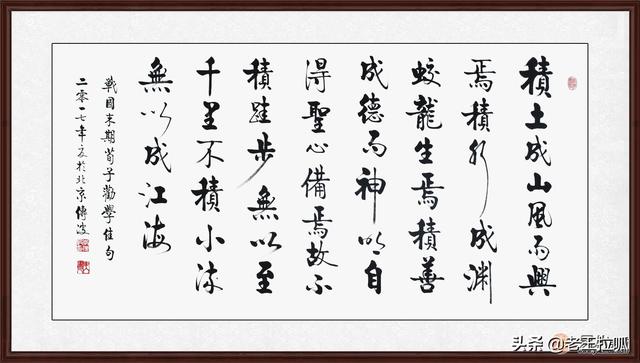 積土成山風雨興
焉積水成淵
蛟龍生焉積善
成德而神明自
得聖心備焉故不
積跬步無以至
千里不積小流
無以成江海
戰國末期荀子勸學佳句
二零一七年夏於北京傳波
头条 @老王拉呱